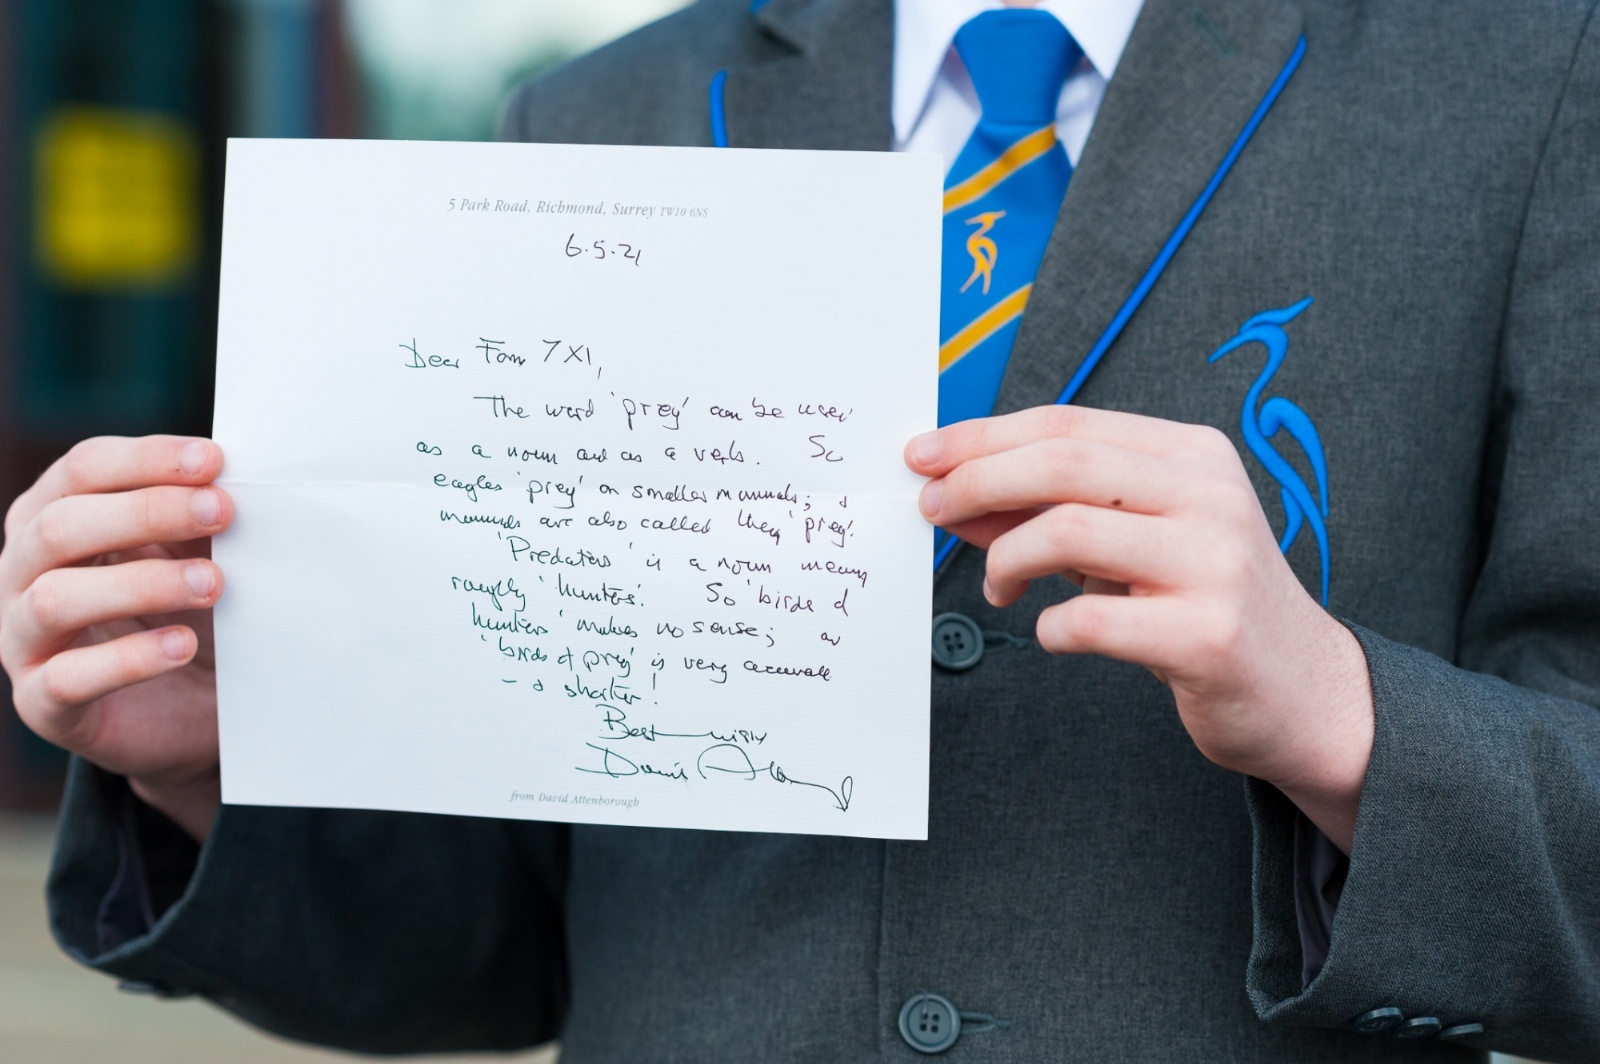 5 Park Road, Richmond, Surrey TW10 6NS
6.5.21
Dear Form 7X1,
The word 'prey' can be used
as a noun and as a verb. So
eagles 'prey' on smaller mammals; &
mammals are also called they 'prey'.
'Predators' is a noun meaning
roughly 'hunters'. So 'birds of
hunters' makes no sense; or
'birds of prey' is very accurate
- & shorter!
Best wishes
David Attenborough
from David Attenborough